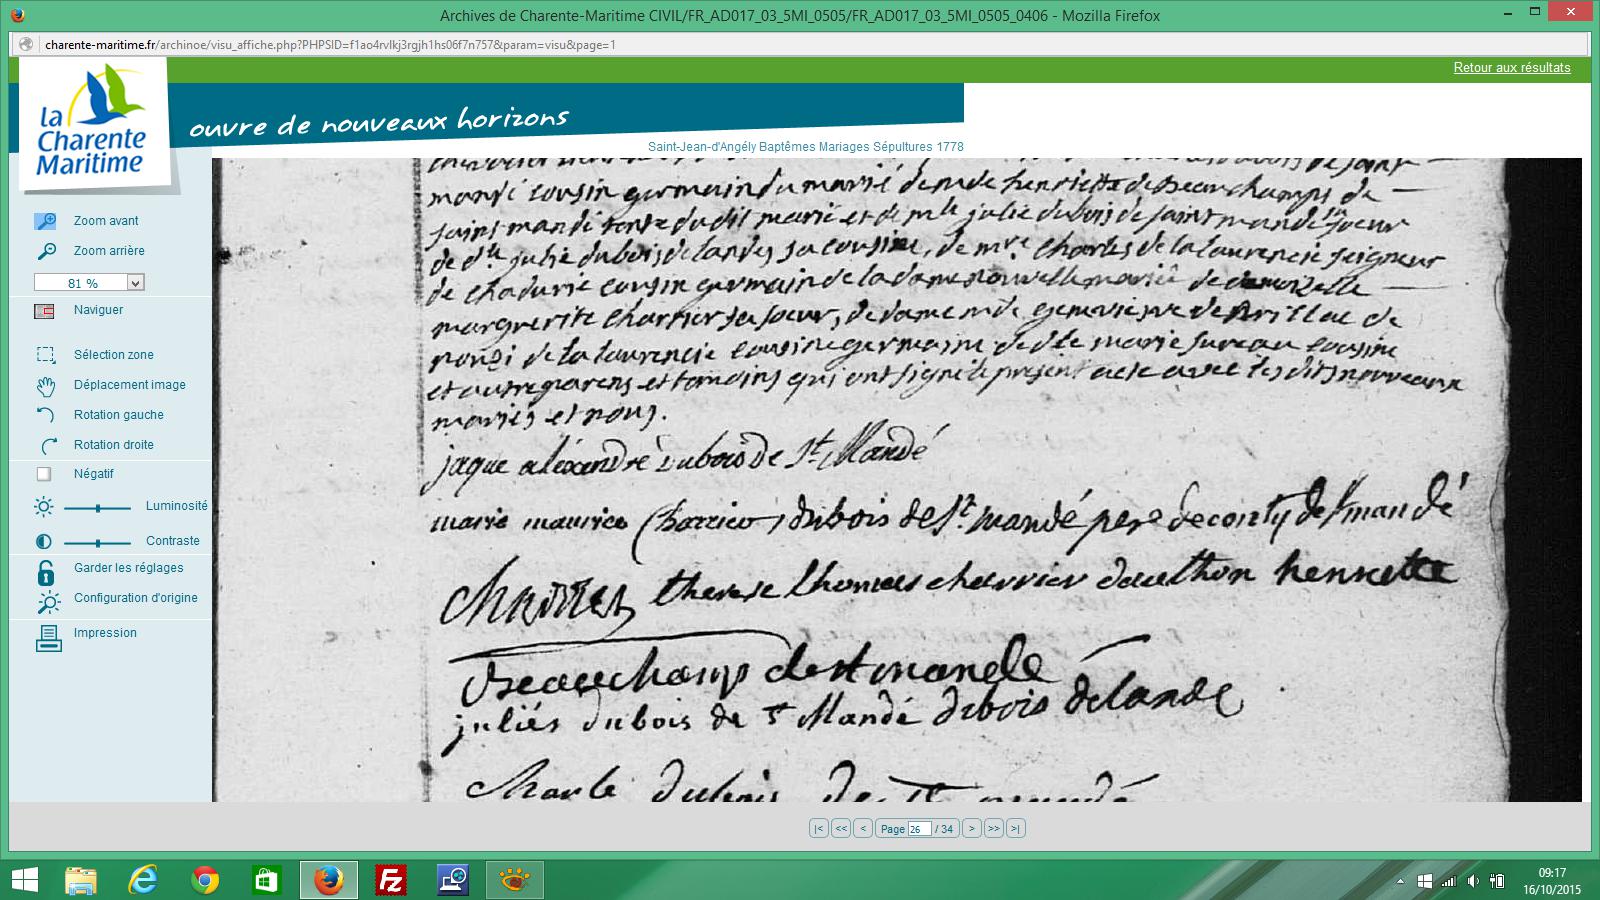 Archives de Charente-Maritime CIVIL/FR_AD017_03_5MI_0505/FR_AD017_03_5MI_0505_0406 - Mozilla Firefox
charente-maritime.fr/archinoe/visu_affiche.php?PHPSID=f1ao4rvlkj3rgjh1hs06f7n757&param=visu&page=1
Retour aux résultats
la Charente Maritime
ouvre de nouveaux horizons
Saint-Jean-d'Angély Baptêmes Mariages Sépultures 1778
Zoom avant
Zoom arrière
81 %
Naviguer
Sélection zone
Déplacement image
Rotation gauche
Rotation droite
Négatif
Luminosité
Contraste
Garder les réglages
Configuration d'origine
Impression
mandé cousin germain du marié de mde henriette de Beauchamps de
saint mandé tante du dit marié et de mlle julie dubois de saint mandé soeur
de dlle julie dubois de landes sa cousine, de mre charles de la laurencie seigneur
de chadurie cousin germain de la dame nouvelle mariée de demoizelle
marguerite charrier sa soeur, de dame mde genevieve de Brillac de
de la laurencie cousine germaine de dlle marie sureau cousine
et autre parens et temoins qui ont signé le présent acte avec les dits nouveaux
mariés et nous.
jaque aléxandre dubois de St Mandé
marie maurice Charrier dubois de St mandé pere de conty de St mandé
Charrier therese thomas charrier dauthon henriette
Beauchamp de st mandé
juliés dubois de St Mandé dubois delande
Charle dubois de St mandé
|< << < Page 26 / 34 > >> >|
09:17
16/10/2015